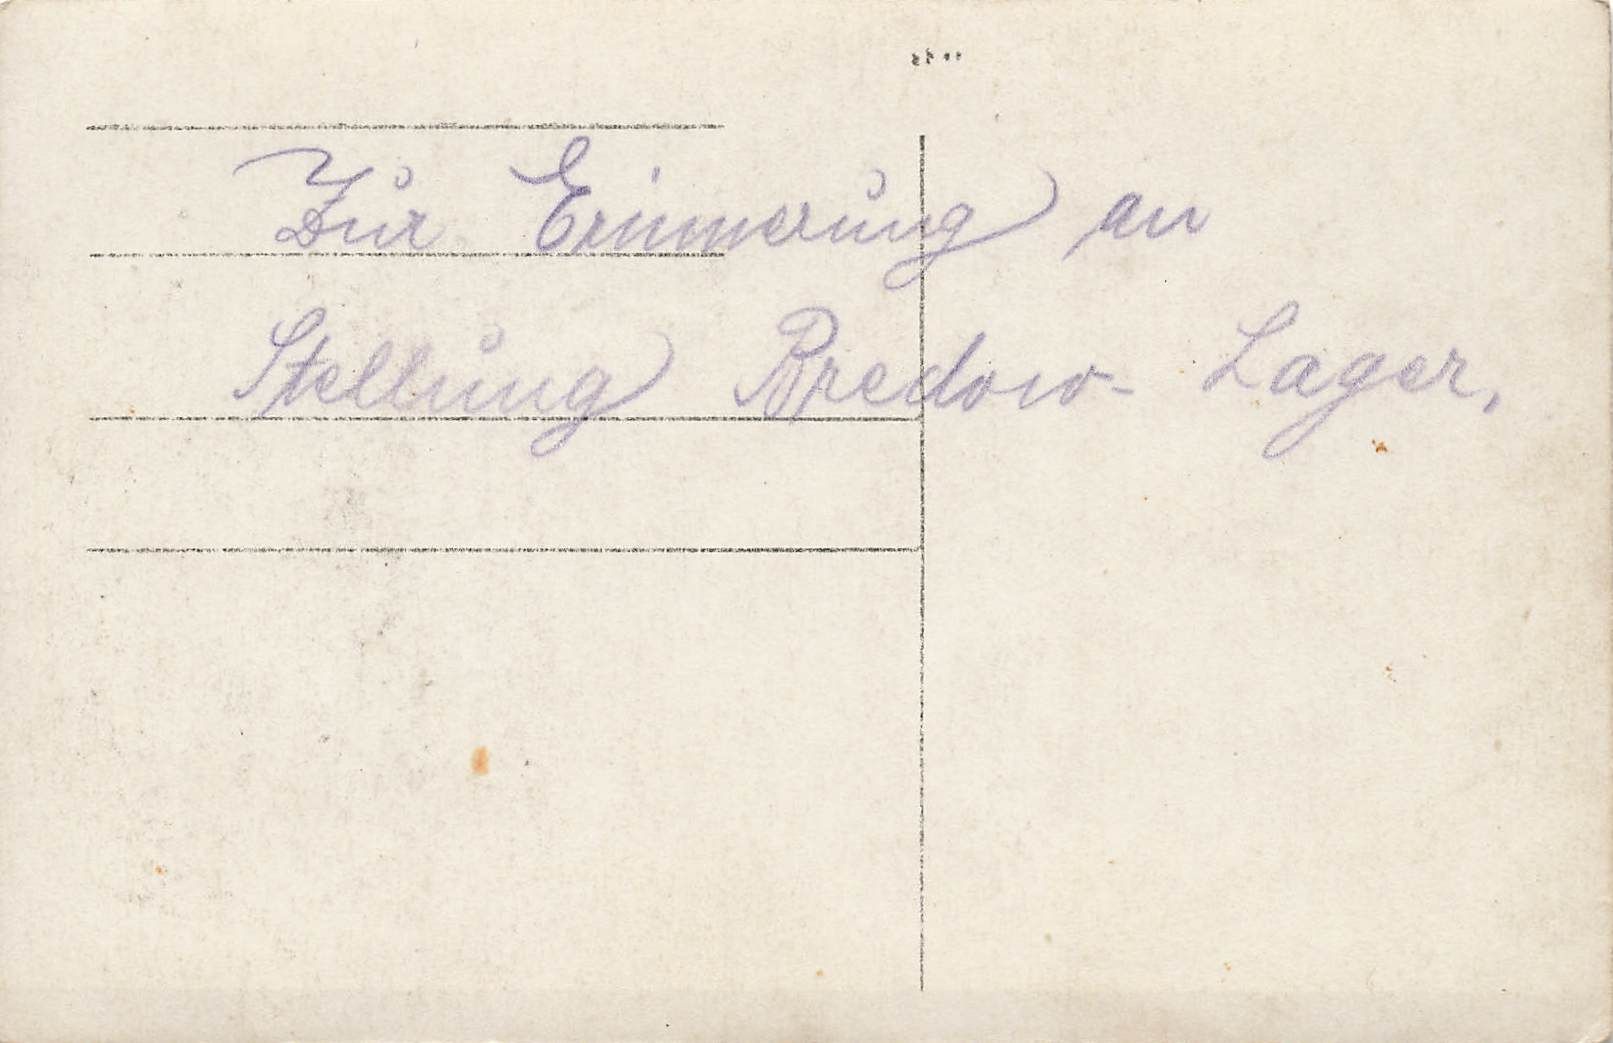 Zur Erinnerung an
Stellung Bredow-Lager.